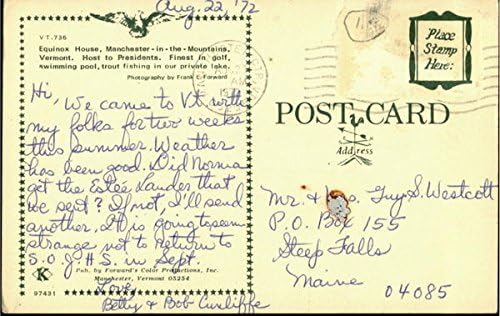 Aug. 22, '72
VT.-736
Equinox House, Manchester-in-the-Mountains,
Vermont. Host to Presidents. Finest in golf,
swimming pool, trout fishing in our private lake.
Photography by Frank L. Forward
Hi, We came to Vt. with
my folks for two weeks
this summer. Weather
has been good. Did Norma
get the Estée Lauder that
we sent? If not, I'll send
another. It is going to seem
strange not to return to
S.O.J.H.S. in Sept.
K
Pub. by Forward's Color Productions, Inc.
Manchester, Vermont 05254
97431
Love
Betty & Bob Cunliffe
Place
Stamp
Here:
POST CARD
Address
Mr. & Mrs. Guy S. Westcott
P.O. Box 155
Steep Falls
Maine
04085